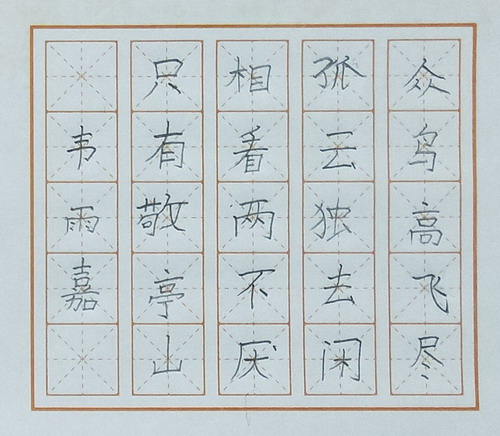 众鸟高飞尽
孤云独去闲
相看两不厌
只有敬亭山
韦雨嘉